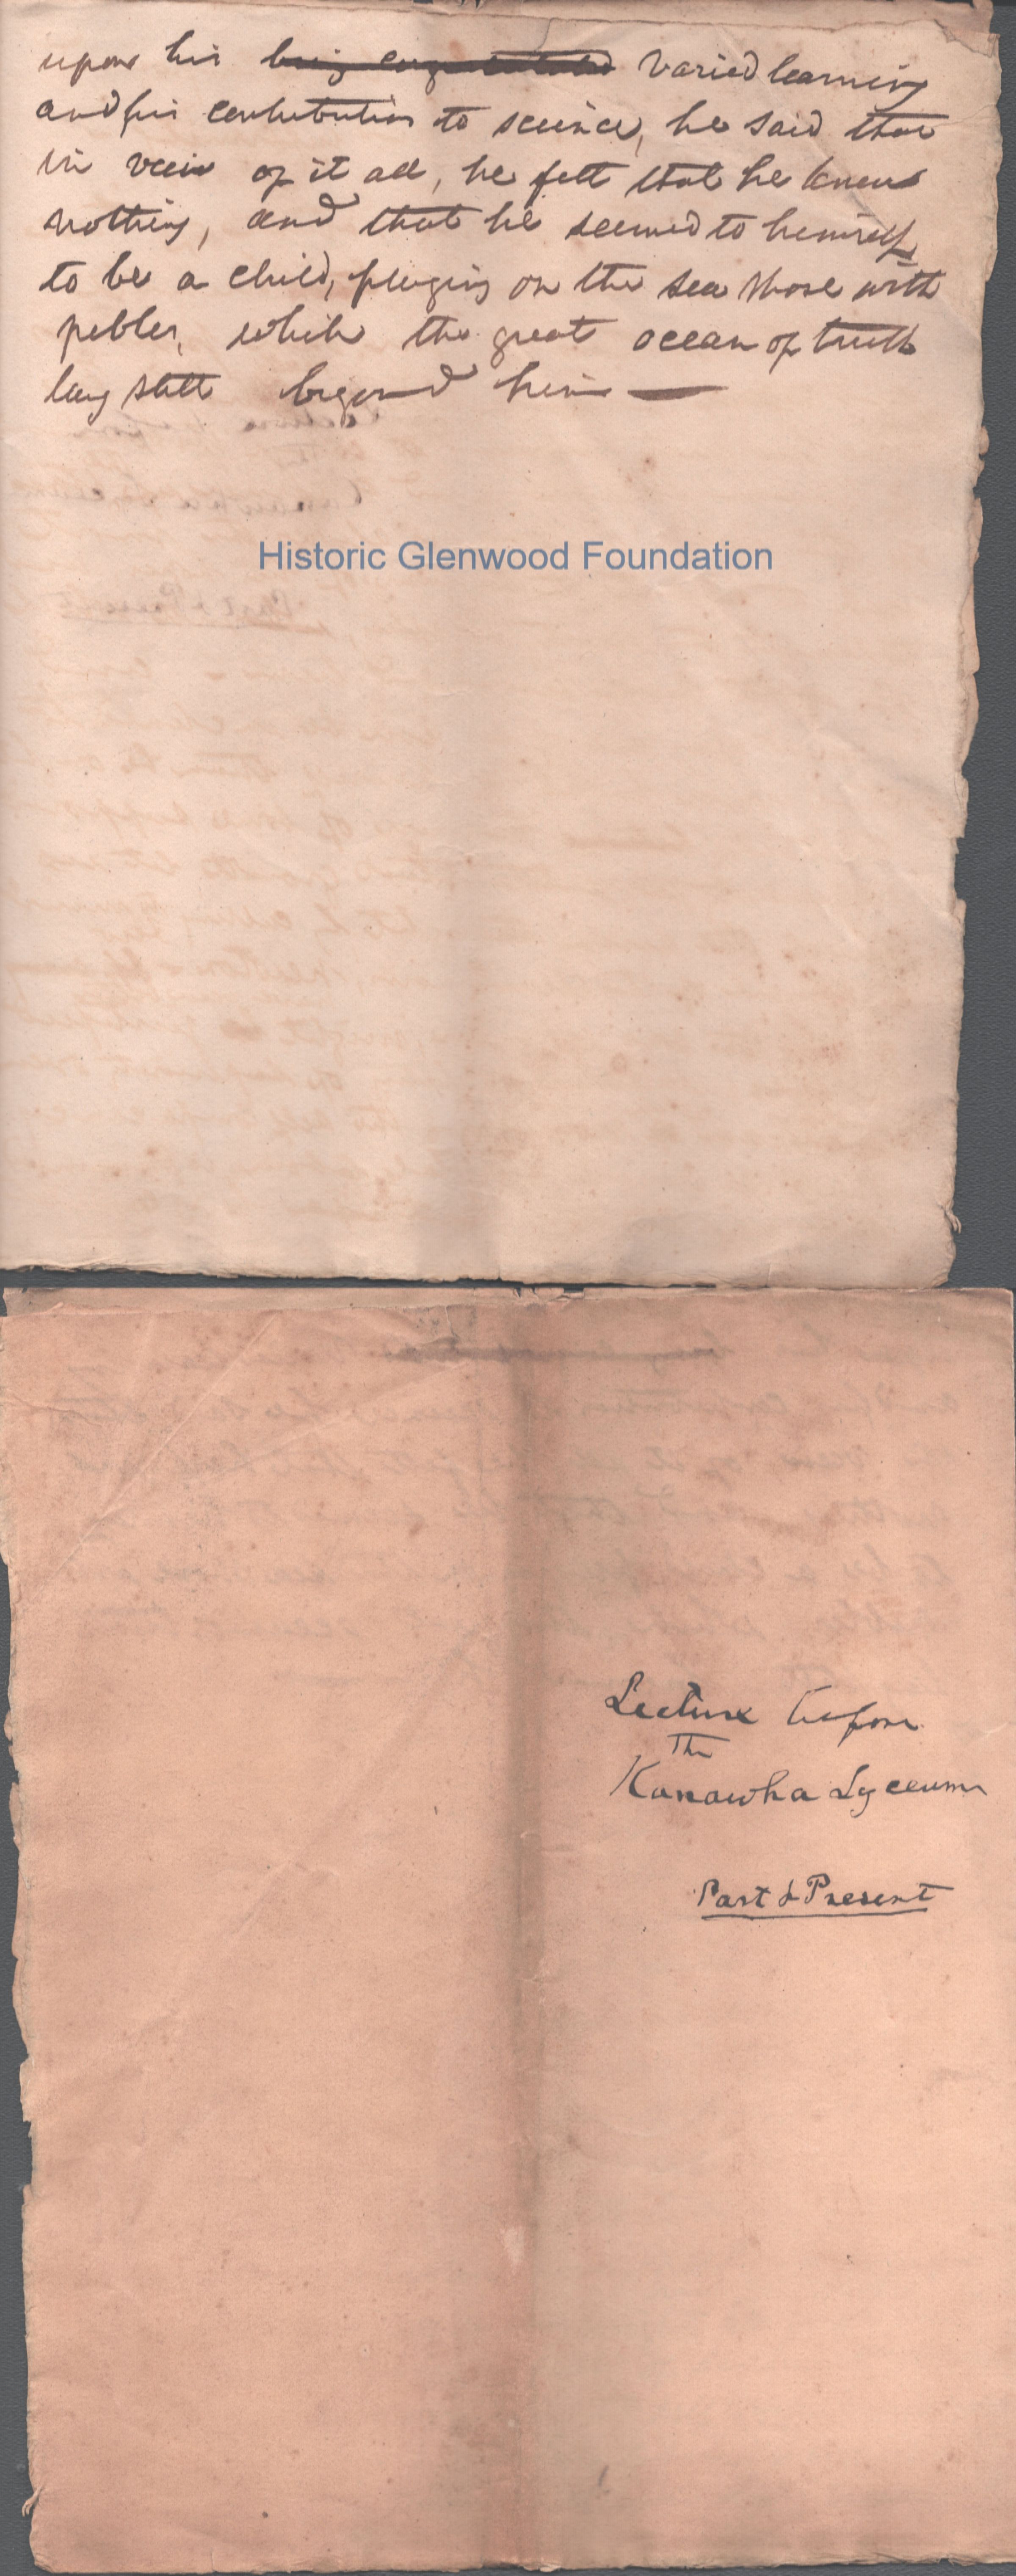 upon his being congratulated varied learning
and his contribution to science, he said that
in view of it all, he felt that he knew
nothing, and that he seemed to himself
to be a child, playing on the sea shore with
pebles, while the great ocean of truth
lay still beyond him —
Historic Glenwood Foundation
Lecture before
The
Kanawha Lyceum
Past & Present